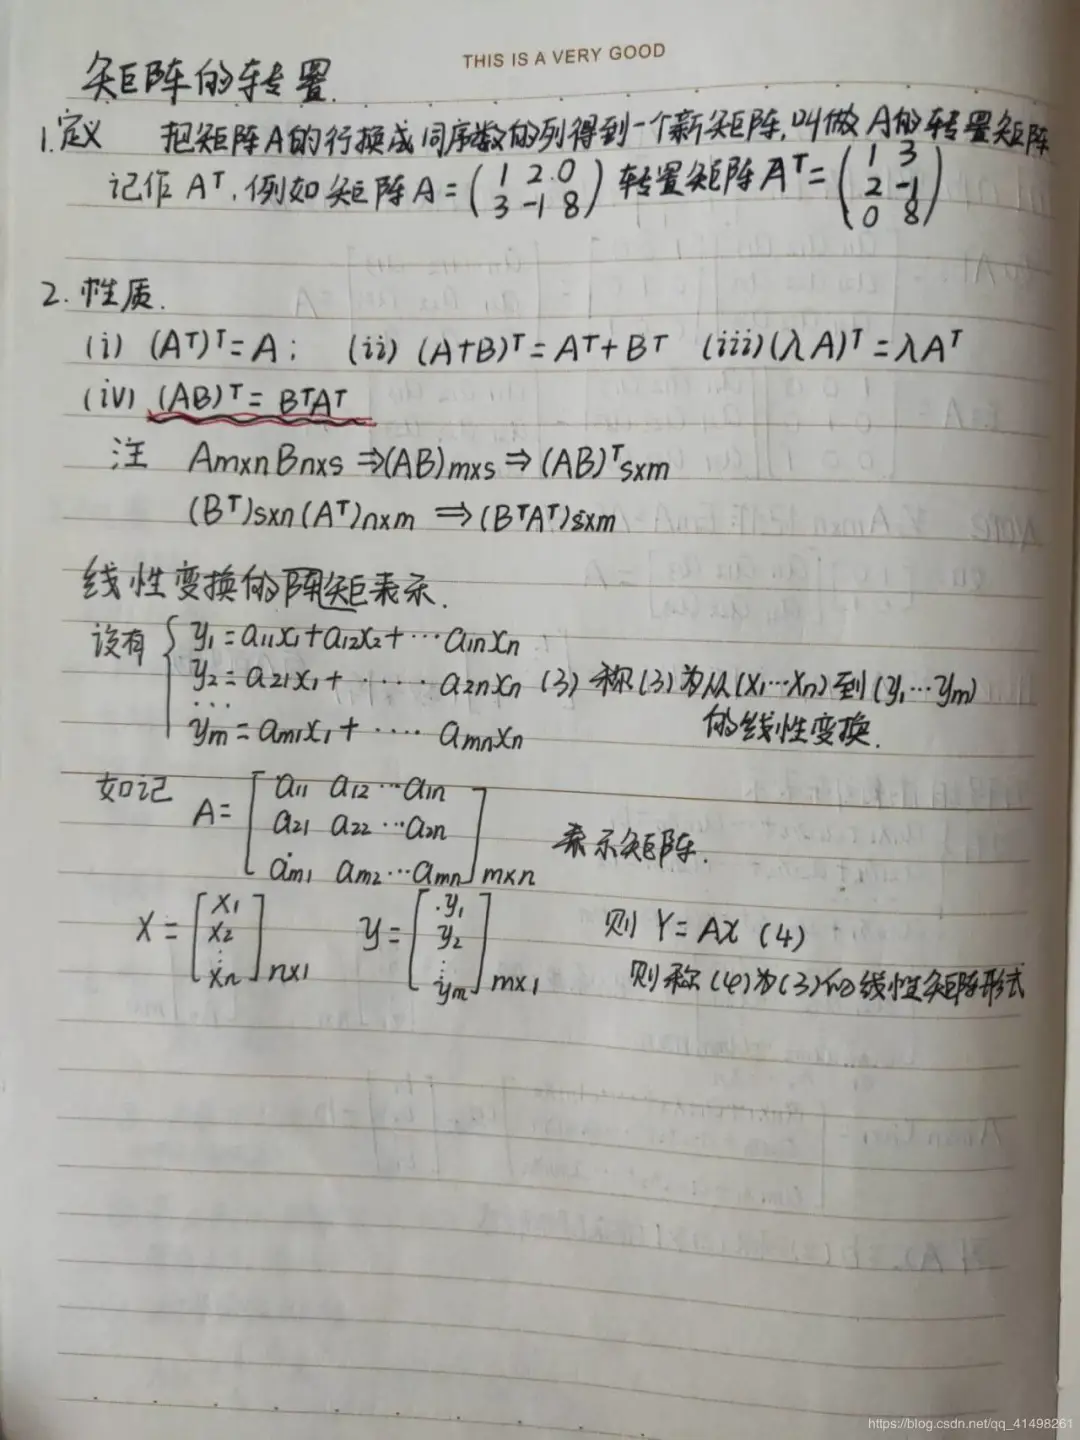 THIS IS A VERY GOOD
矩阵的转置.
1.定义 把矩阵A的行换成同序数的列得到一个新矩阵,叫做A的转置矩阵
记作 Aᵀ, 例如矩阵A = ( 1 2 0 / 3 -1 8 ) 转置矩阵Aᵀ = ( 1 3 / 2 -1 / 0 8 )
2. 性质.
(i) (Aᵀ)ᵀ = A; (ii) (A+B)ᵀ = Aᵀ + Bᵀ (iii) (λA)ᵀ = λAᵀ
(iv) (AB)ᵀ = BᵀAᵀ
注 Am×n Bn×s ⇒ (AB)m×s ⇒ (AB)ᵀs×m
(Bᵀ)s×n (Aᵀ)n×m ⇒ (BᵀAᵀ)s×m
线性变换的阵矩表示.
设有 { y₁ = a₁₁x₁ + a₁₂x₂ + ⋯ a₁ₙxₙ
y₂ = a₂₁x₁ + ⋯⋯ a₂ₙxₙ (3) 称(3)为从(x₁⋯xₙ)到(y₁⋯yₘ)
⋯
yₘ = aₘ₁x₁ + ⋯⋯ aₘₙxₙ 的线性变换.
如记 A = [ a₁₁ a₁₂ ⋯ a₁ₙ
a₂₁ a₂₂ ⋯ a₂ₙ
aₘ₁ aₘ₂ ⋯ aₘₙ ] m×n 表示矩阵.
X = [ x₁ x₂ ⋮ xₙ ] n×1 y = [ y₁ y₂ ⋮ yₘ ] m×1 则 Y = AX (4)
则称(4)为(3)的线性矩阵形式
https://blog.csdn.net/qq_41498261